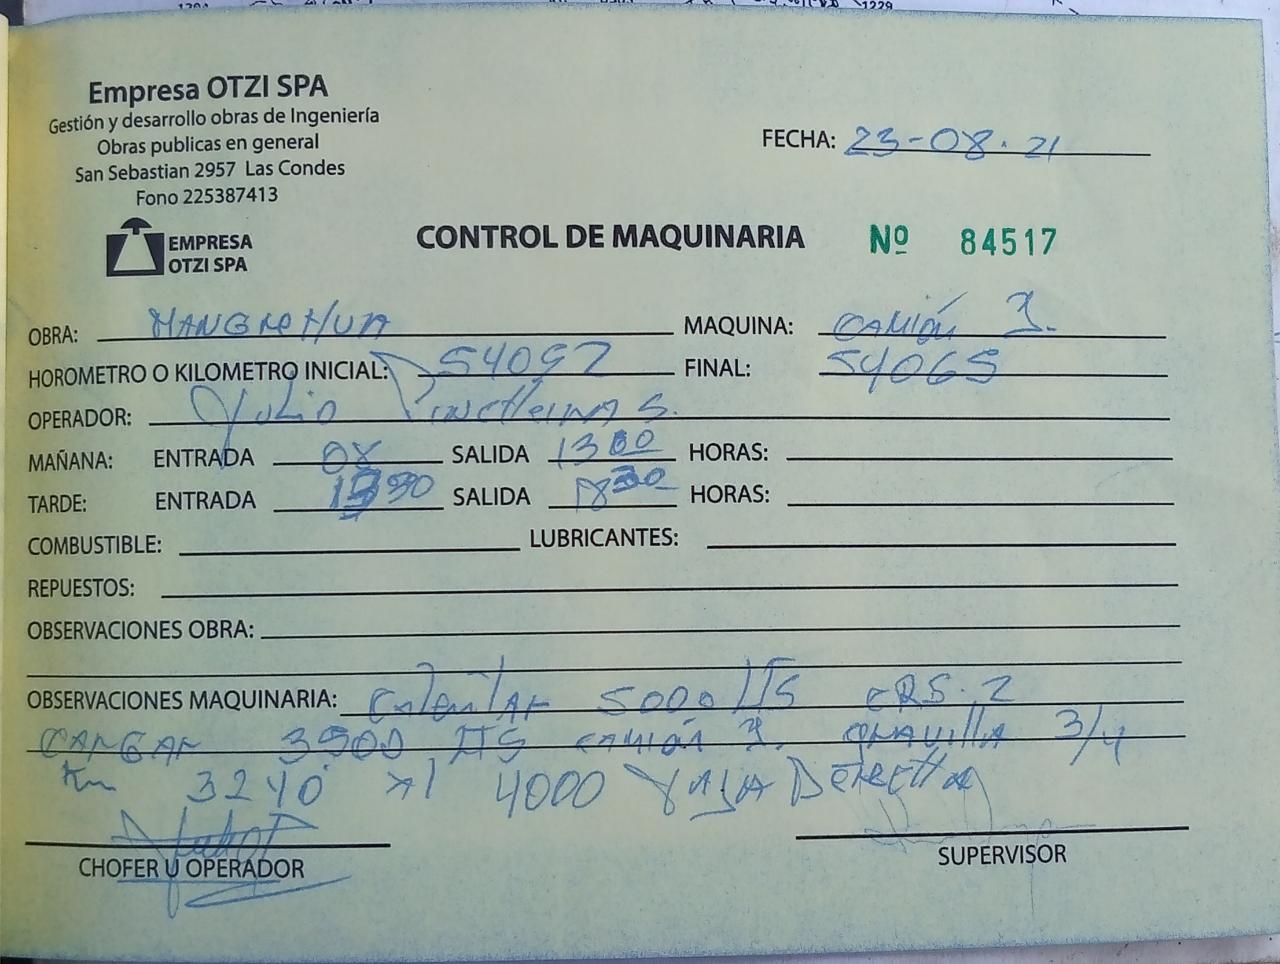 Empresa OTZI SPA
Gestión y desarrollo obras de Ingeniería
Obras publicas en general
San Sebastian 2957 Las Condes
Fono 225387413
EMPRESA
OTZI SPA
FECHA: 23-08-21
CONTROL DE MAQUINARIA Nº 84517
OBRA: MAQUINA: CAMIÓN 3.
HOROMETRO O KILOMETRO INICIAL: FINAL: 54065
OPERADOR: Julio S.
MAÑANA: ENTRADA 08 SALIDA 1300 HORAS:
TARDE: ENTRADA SALIDA 1830 HORAS:
COMBUSTIBLE: LUBRICANTES:
REPUESTOS:
OBSERVACIONES OBRA:
OBSERVACIONES MAQUINARIA: 5000 LTS CRS-2
CARGAR 3500 LTS CAMIÓN 3. GRAVILLA 3/4
Km 3240 Al 4000 DERECHA
CHOFER U OPERADOR
SUPERVISOR